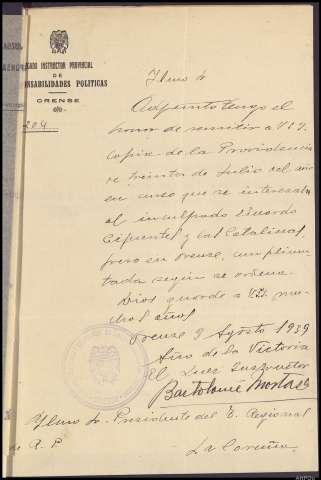 GADO INSTRUCTOR PROVINCIAL
DE
NSABILIDADES POLITICAS
ORENSE
204
Ilmo Sr
Adjunto tengo el
honor de remitir a V I
copia de la Providencia
de treinta de Julio del año
en curso que se interesaba
al inculpado Eduardo
Cifuentes y
preso en Orense, cumplimen
tada según se ordena.
Dios guarde a V.I. mu
chos años
Orense 9 Agosto 1939
Año de la Victoria
El Juez Instructor
Bartolomé
Ylmo Sr. Presidente del T. Regional
de R. P
La Coruña